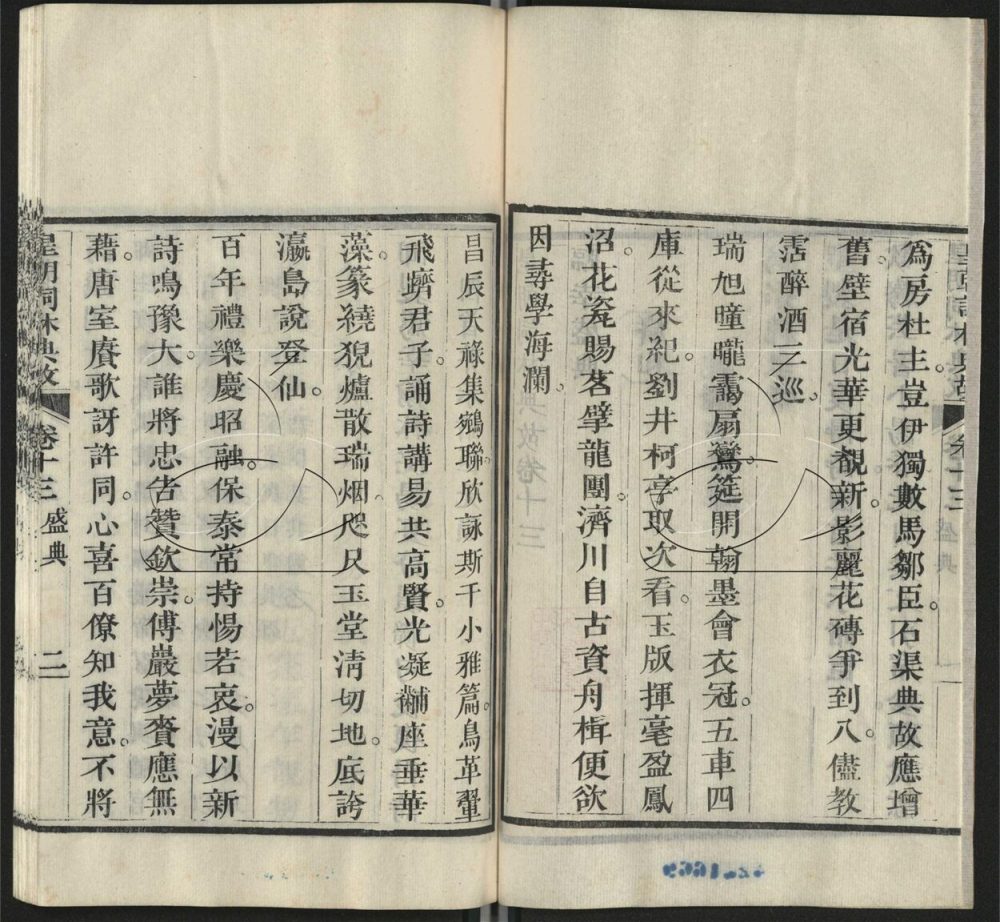 爲房杜主。豈伊獨數馬鄒臣。石渠典故應增
舊。壁宿光華更覩新。影麗花磚爭到八。儘教
霑醉酒三巡。
瑞旭曈曨靄扇鸞。筵開翰墨會衣冠。五車四
庫從來紀。劉井柯亭取次看。玉版揮毫盈鳳
沼。花瓷賜茗擘龍團。濟川自古資舟楫。便欲
因尋學海瀾。
昌辰天祿集鵷聯。欣詠斯干小雅篇。鳥革翬
飛躋君子。誦詩講易共高賢。光凝黼座垂華
藻。篆繞猊爐散瑞烟。咫尺玉堂淸切地。底誇
瀛島說登仙。
百年禮樂慶昭融。保泰常持惕若衷。漫以新
詩鳴豫大。誰將忠告贊欽崇。傅巖夢賚應無
藉。唐室賡歌訝許同。心喜百僚知我意。不將
皇朝詞林典故 卷十三 盛典 二